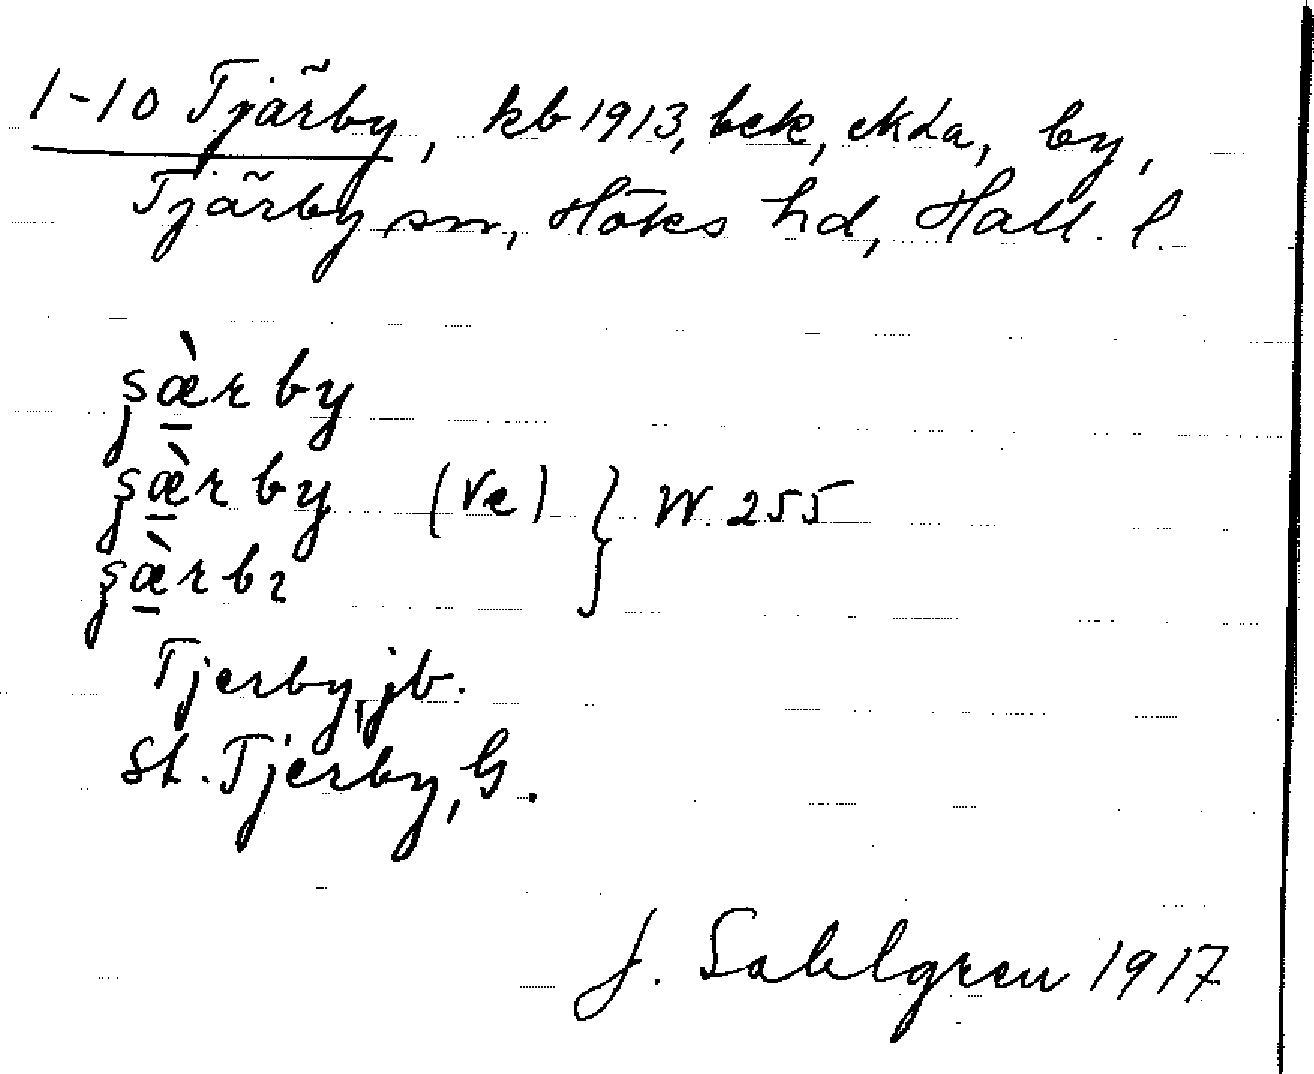 1-10 Tjärby, kb 1913, bek, ekda, by,
Tjärby sn, Höks hd, Hall. l.
şæ̀rby
şæ̀rby (Ve) } W. 255
şæ̀rbı
Tjerby, jb.
St. Tjerby, G.
J. Sahlgren 1917